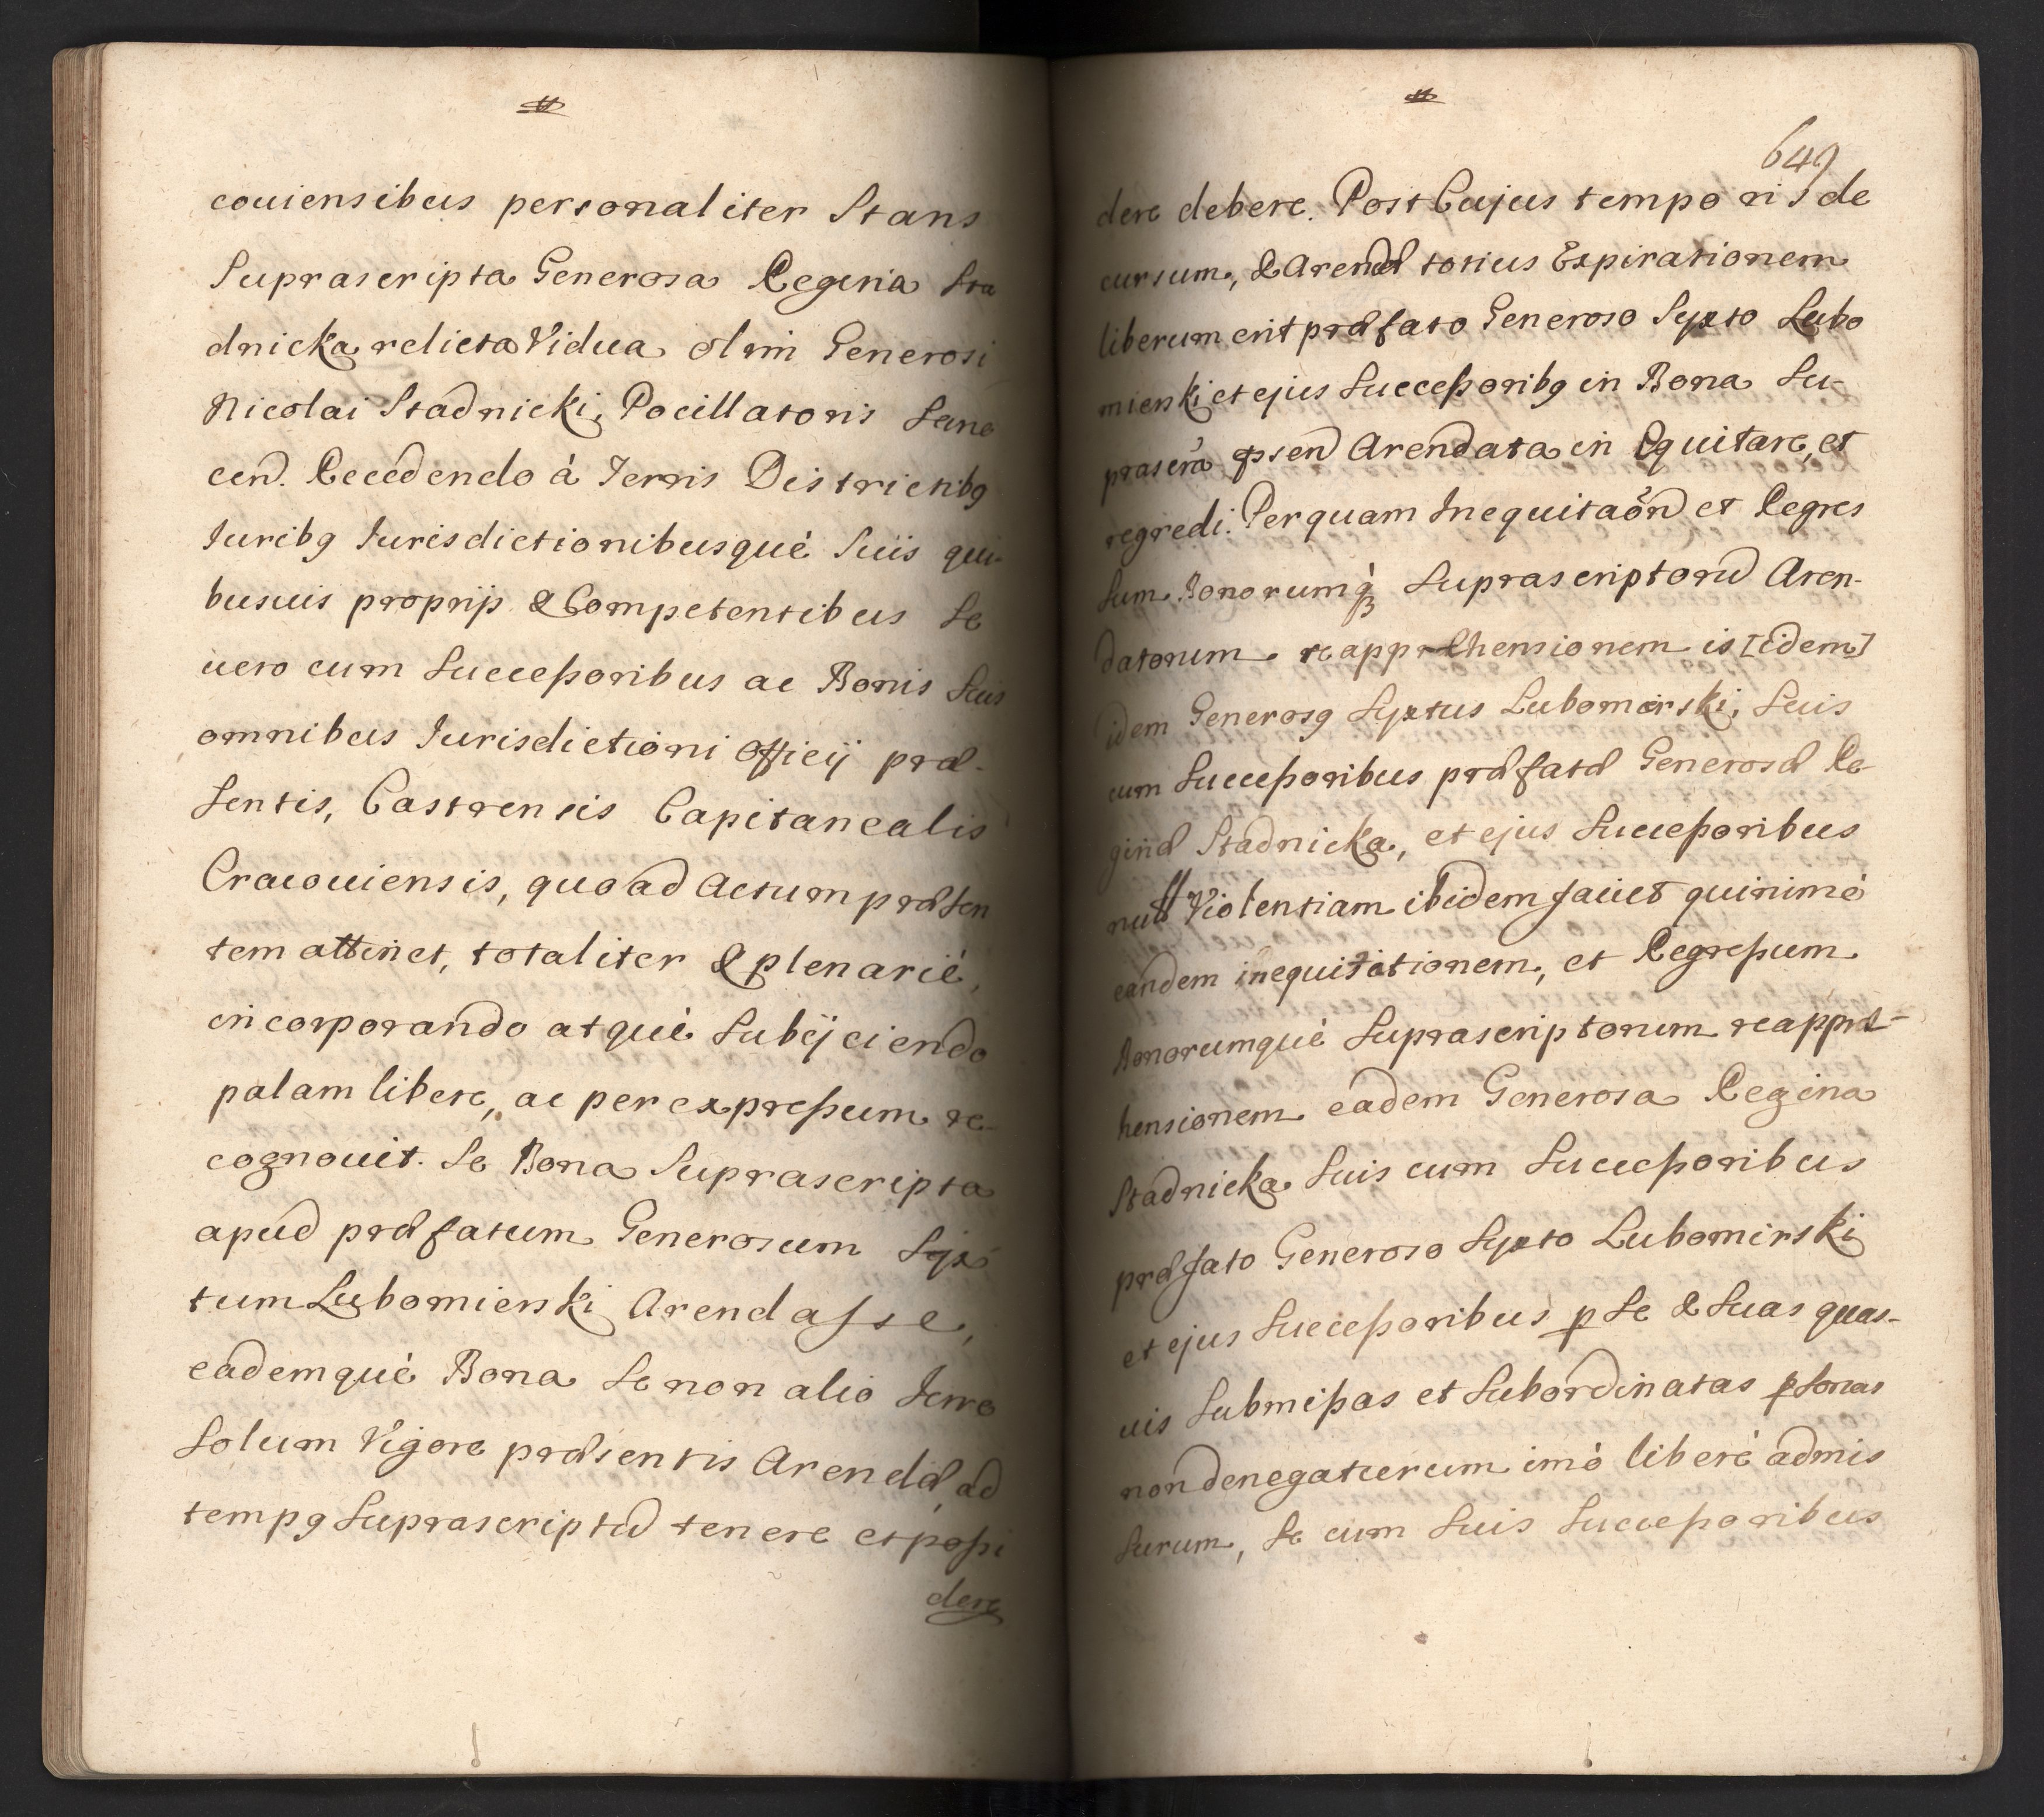 couiensibus personaliter Stans
Suprascripta Generosa Regina Sta
dnicka relicta Vidua olim Generosi
Nicolai Stadnicki, Pocillatoris Sano
cen. Recedendo à Terris Districtibꝯ
Juribꝯ Jurisdictionibusquè Suis qui-
busuis proprijs & Competentibus Se
uero cum Succeßoribus ac Bonis Suis
omnibus Jurisdictioni Officij præ-
Sentis, Castrensis Capitanealis
Cracouiensis, quo ad Actum præsen
tem attinet, totaliter & plenariè,
incorporando atquè Subijciendo
palam libere, ac per expreßum re-
cognouit. Se Bona Suprascripta
apud præfatum Generosum Syx-
tum Lubomierski Arendasse,
eademquè Bona Se non alio Jure
Solum Vigore præsentis Arendæ, ad
tempꝯ Suprascriptū tenere et poßi
dere
649
dere debere. Post Cujus temporis de
cursum, & Arendæ totius Expirationem
liberum erit præfato Generoso Syxto Lubo
mierski et ejus Succeßoribꝯ in Bona Su-
prascra ꝑsen Arendata in Equitare, et
regredi. Per quam Inequitaōn et Regres
Sum Bonorumq̀ꝫ Suprascriptorū Aren-
datorum reapprehensionem is [idem]
idem Generosꝯ Syxtus Lubomirski, Suis
cum Succeßoribus præfatæ Generosæ Re-
ginæ Stadnicka, et ejus Succeßoribus
null Violentiam ibidem faciet quinimò
eandem inequitationem, et Regreßum
Bonorumquè Suprascriptorum reappræ-
hensionem eadem Generosa Regina
Stadnicka Suis cum Succeßoribus
præfato Generoso Syxto Lubomirski
et ejus Succeßoribus ꝑ Se & Suas quas-
uis Submißas et Subordinatas ꝑSonas
non denegaturum imò liberè admis
Surum, Se cum Suis Succeßoribus